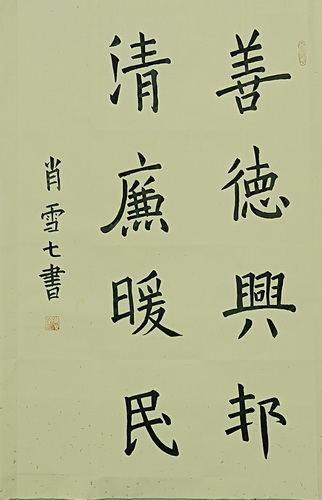 善德興邦
清廉暖民
肖雪七書